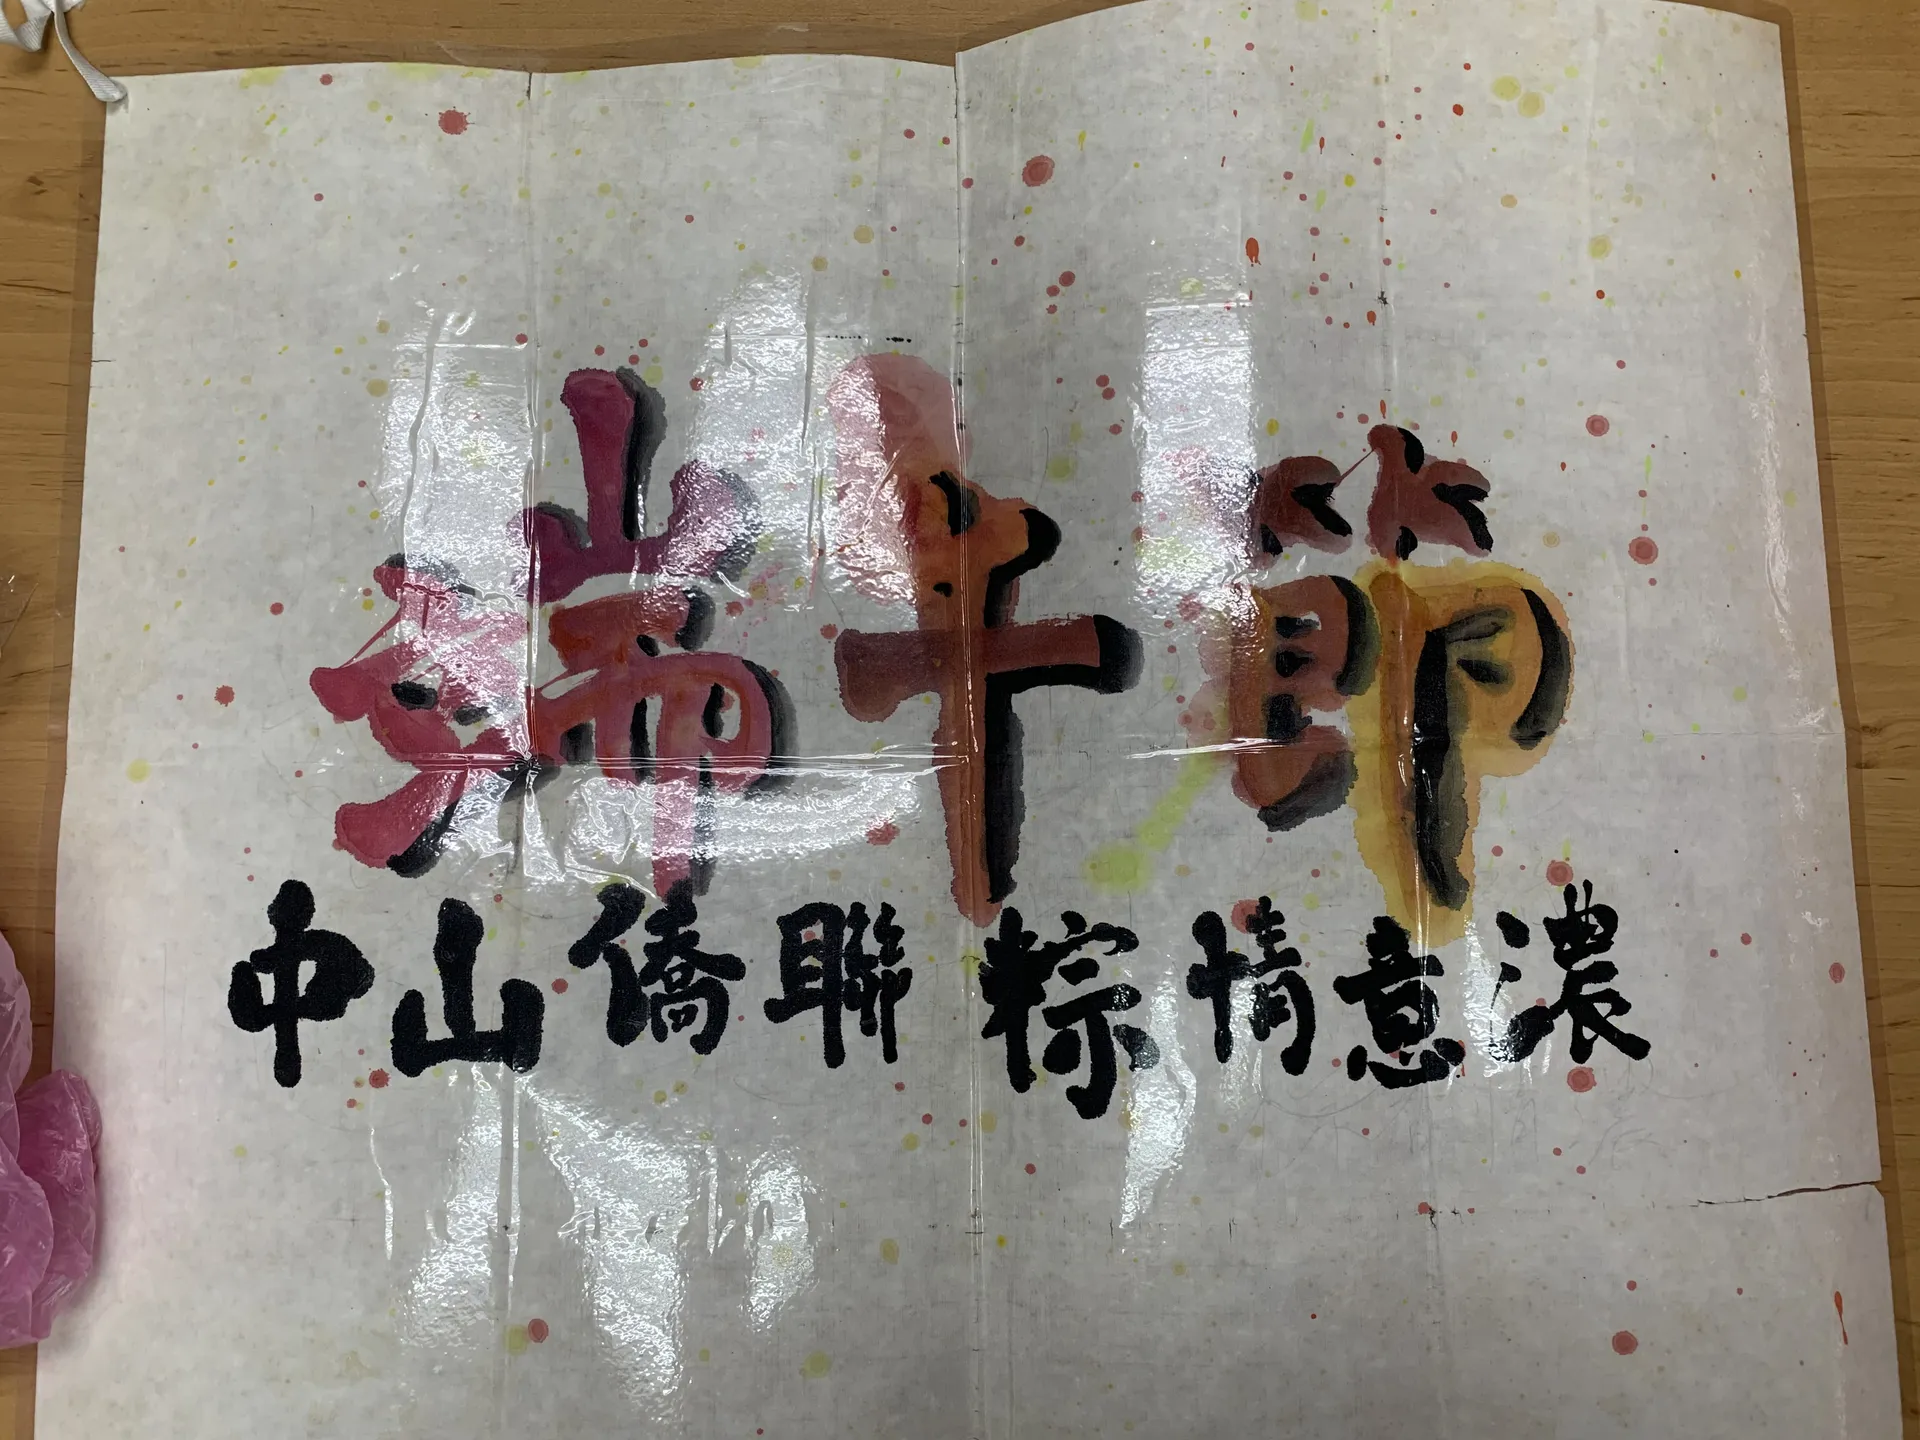 端午節
中山僑聯粽情意濃